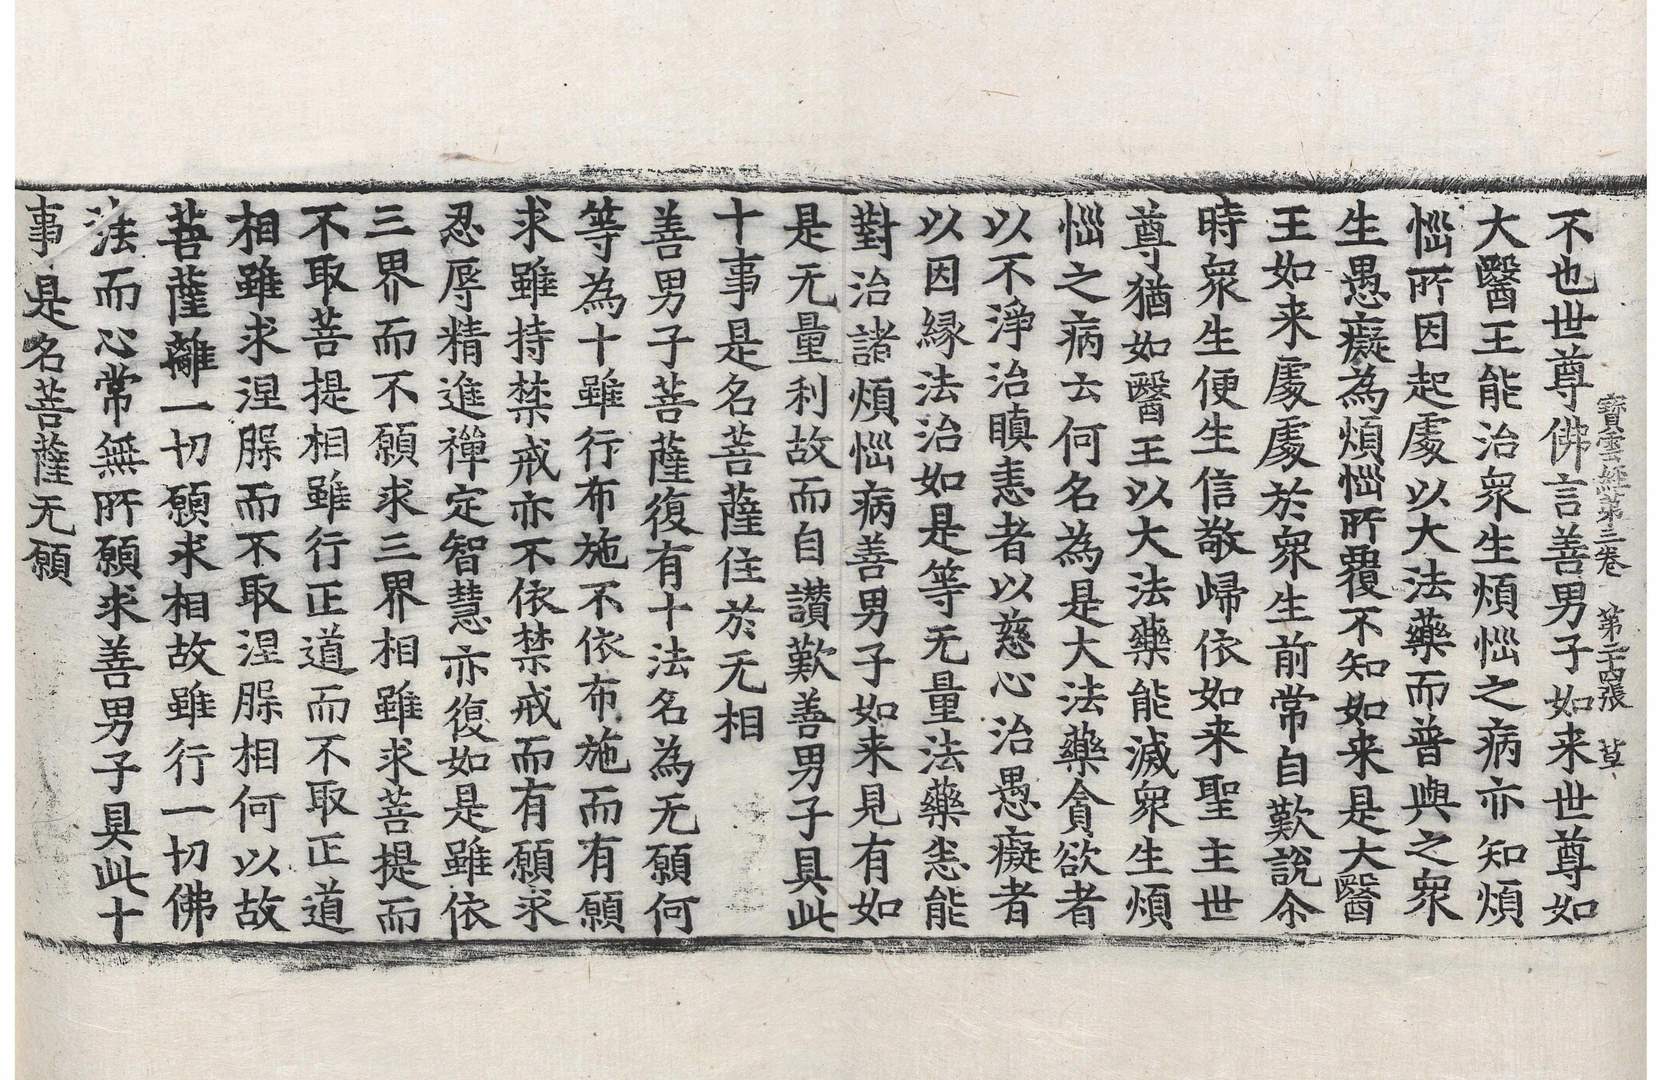 寳雲經第三卷 第二十四張 草
不也世尊佛言善男子如来世尊如
大醫王能治衆生煩惱之病亦知煩
惱所因起處以大法藥而普與之衆
生愚癡為煩惱所覆不知如来是大醫
王如来處處於衆生前常自歎說令
時衆生便生信敬歸依如来聖主世
尊猶如醫王以大法藥能滅衆生煩
惱之病云何名為是大法藥貪欲者
以不淨治瞋恚者以慈心治愚癡者
以因緣法治如是等无量法藥悉能
對治諸煩惱病善男子如来見有如
是无量利故而自讃歎善男子具此
十事是名菩薩住於无相
善男子菩薩復有十法名為无願何
等為十雖行布施不依布施而有願
求雖持禁戒亦不依禁戒而有願求
忍辱精進禪定智慧亦復如是雖依
三界而不願求三界相雖求菩提而
不取菩提相雖行正道而不取正道
相雖求涅槃而不取涅槃相何以故
菩薩離一切願求相故雖行一切佛
法而心常無所願求善男子具此十
事是名菩薩无願